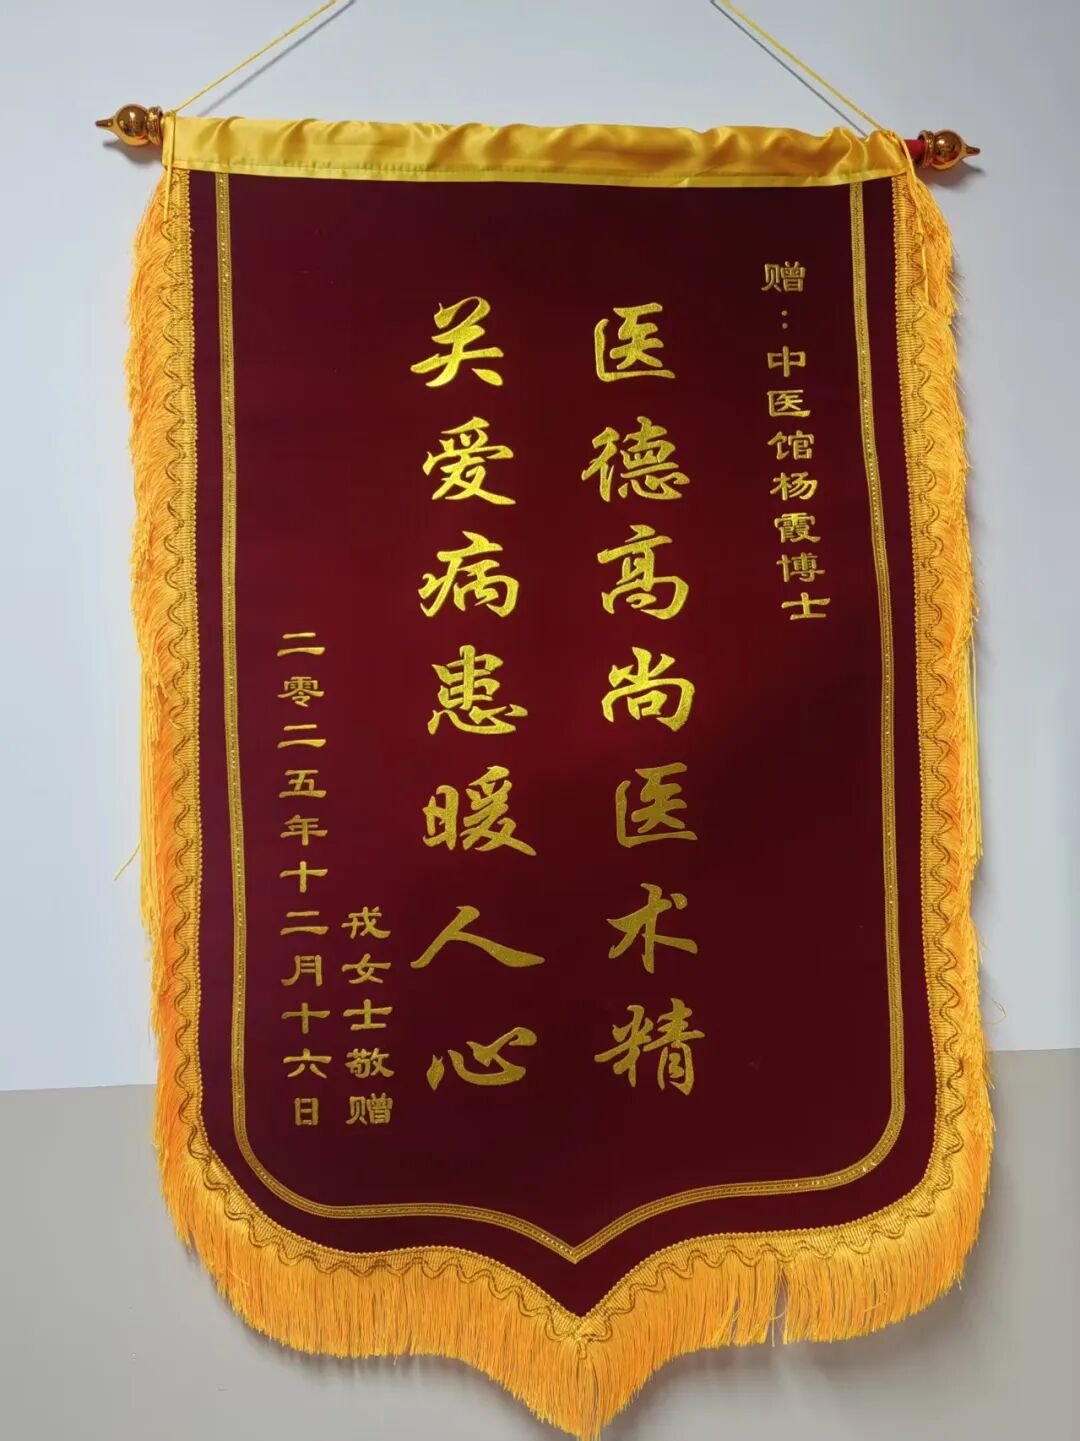 赠：中医馆杨霞博士
医德高尚医术精
关爱病患暖人心
戎女士敬赠
二零二五年十二月十六日